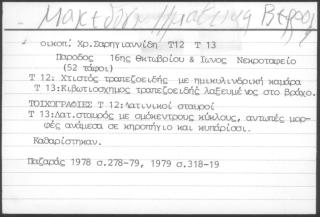 Μακεδονία Ημαθεία Βέροια
οικοπ. Χρ.Σαρηγιαννίδη Τ12 Τ 13
Παροδος 16ης Οκτωβρίου & Ιωνος Νεκροταφείο
(52 τάφοι)
Τ 12: Χτιστός τραπεζοειδής με ημικυλινδρική καμάρα
Τ 13:Κιβωτιοσχημος τραπεζοειδής λαξευμένος στο βράχο.
ΤΟΙΧΟΓΡΑΦΙΕΣ Τ 12:Λατινικοί σταυροί
Τ 13:Λατ.σταυρός με ομόκεντρους κύκλους, αντωπές μορ-
φές ανάμεσα σε κηροπήγιο και κυπάρισσι.
Καθαρίστηκαν.
Παζαράς 1978 σ.278-79, 1979 σ.318-19